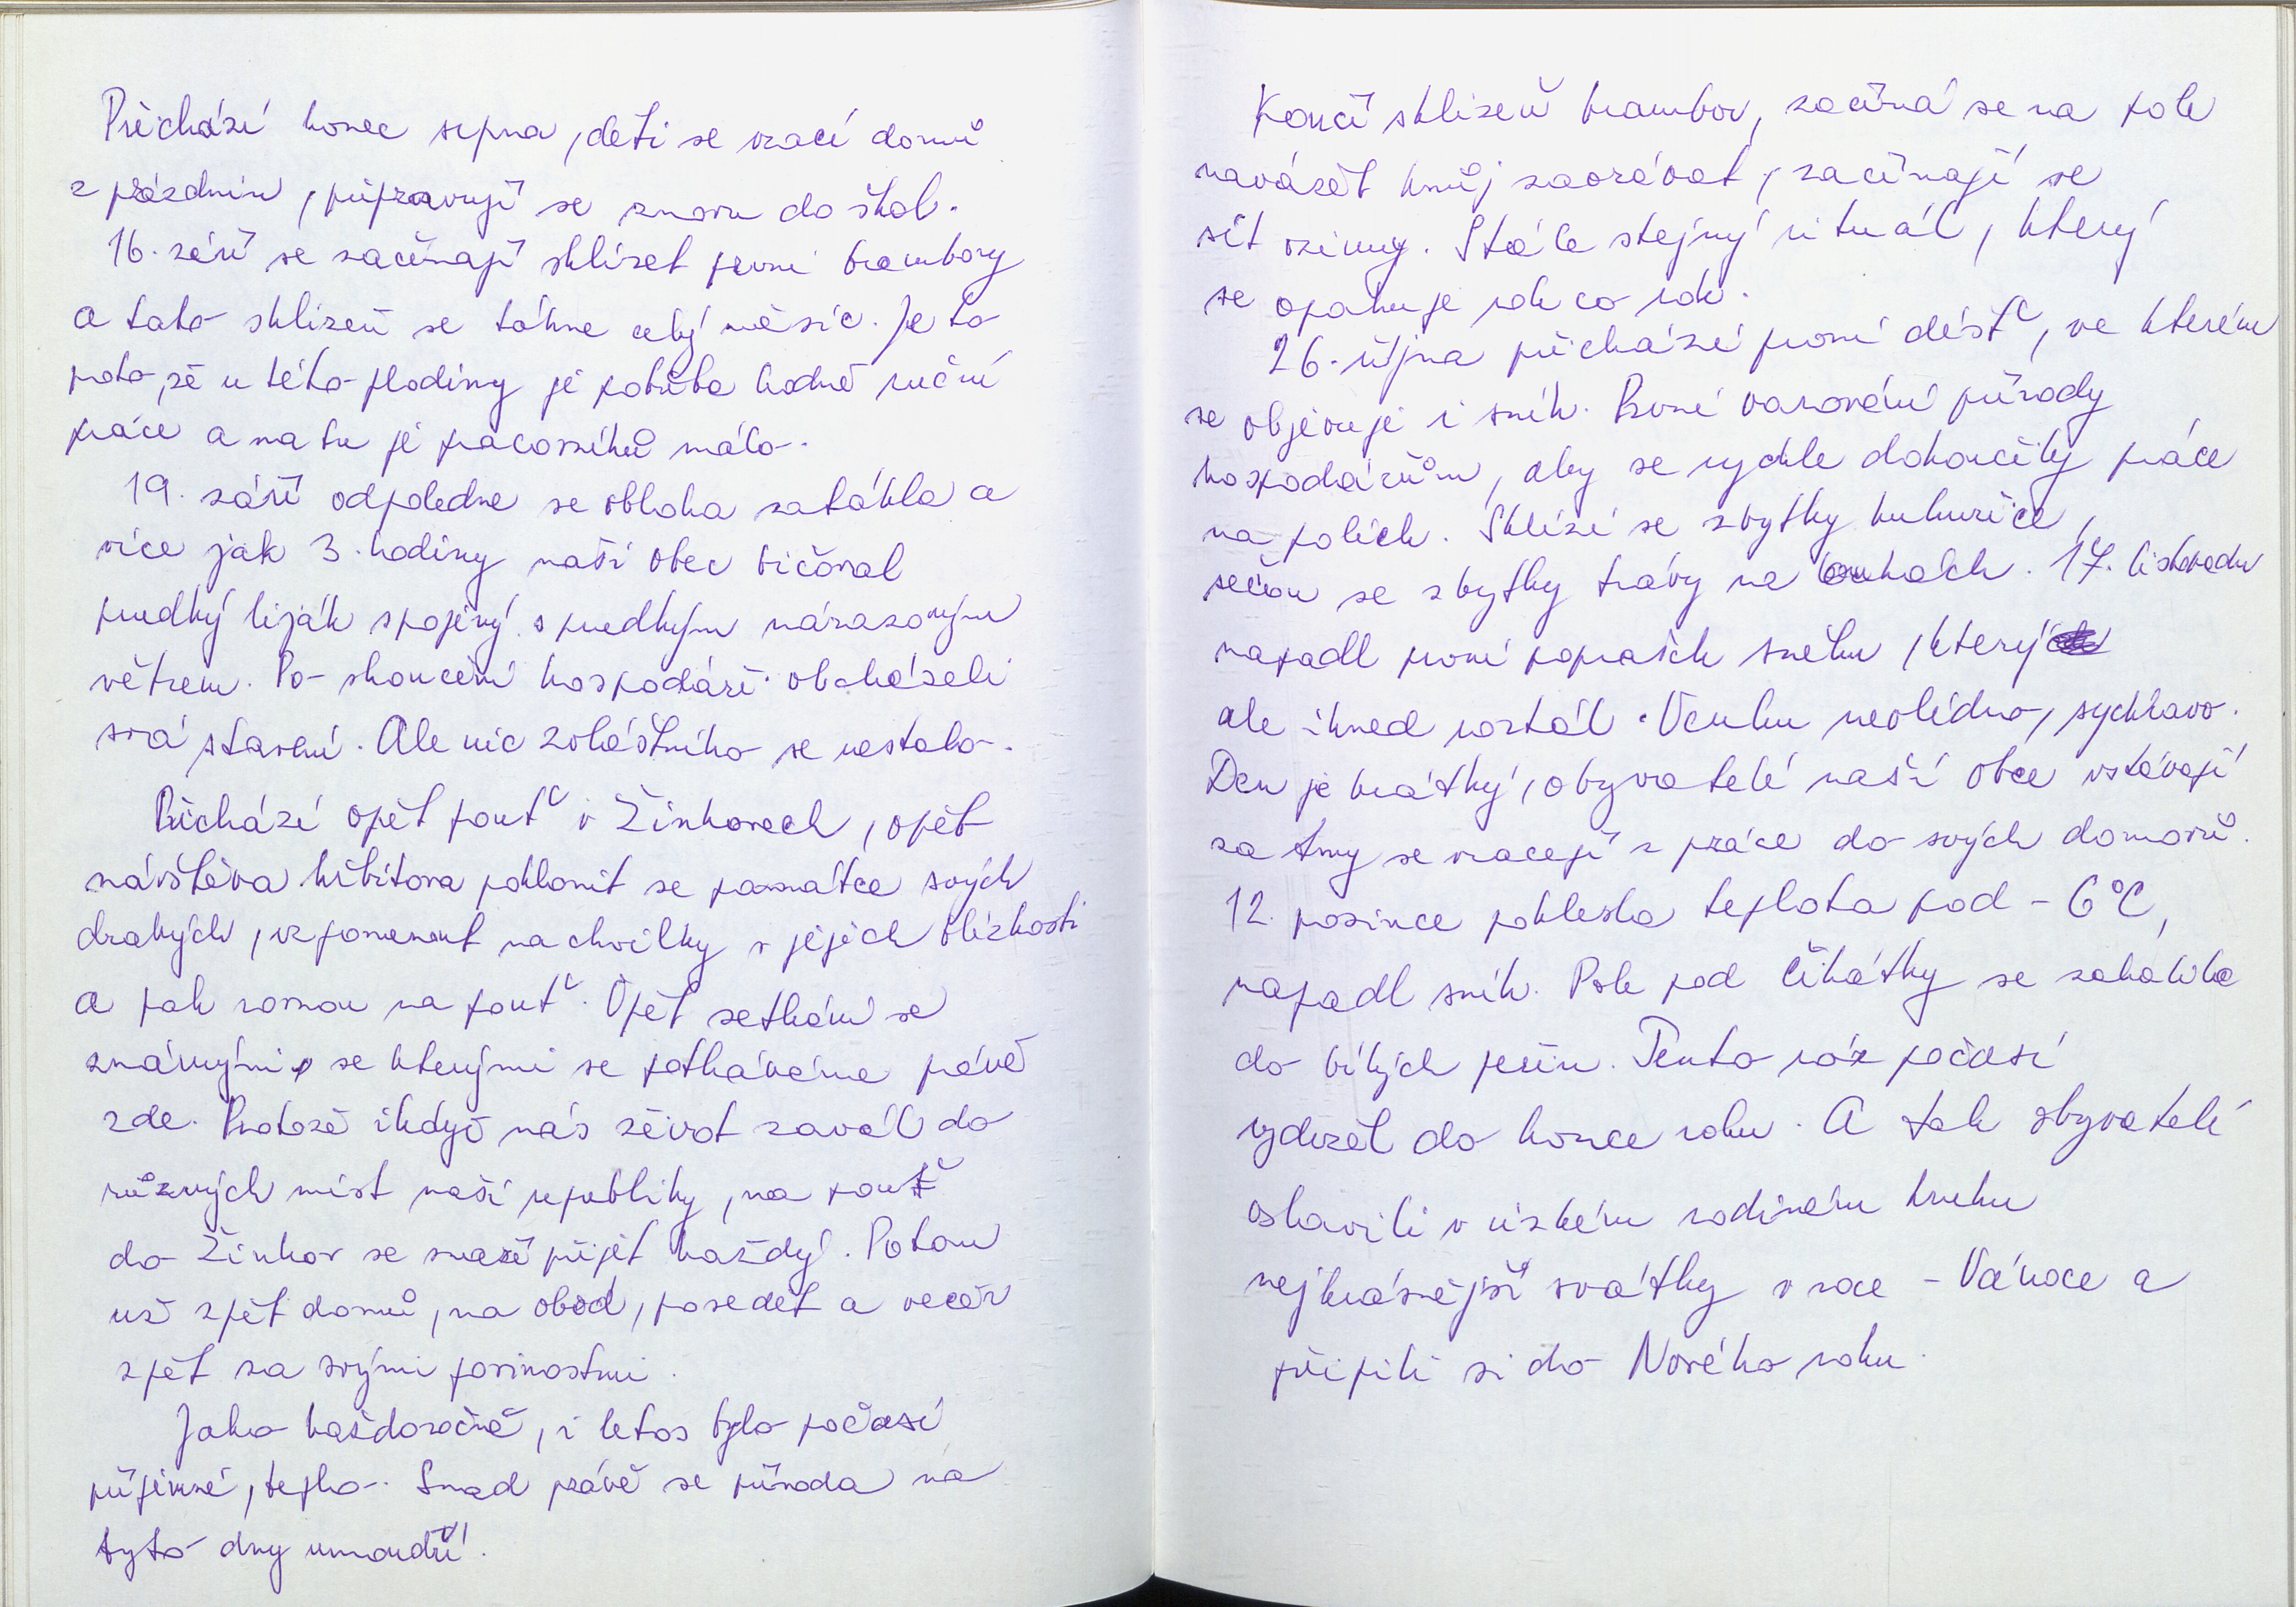 Přichází konec srpna, děti se vrací domů
z prázdnin, připravují se znovu do škol.
16. září se začínají sklízet první brambory
a tato sklizeň se táhne celý měsíc. Je to
proto, že u této plodiny je potřeba hodně ruční
práce a na tu je pracovníků málo.
19. září odpoledne se obloha zatáhla a
více jak 3. hodiny naši obec bičoval
prudký liják spojený s prudkým nárazovým
větrem. Po skončení hospodáři obcházeli
svá stavení. Ale nic zvláštního se nestalo.
Přichází opět pouť v Žinkovech, opět
návštěva hřbitova poklonit se památce svých
drahých, vzpomenout na chvilky v jejich blízkosti
a pak rovnou na pouť. Opět setkání se
známými, se kterými se potkáváme právě
zde. Protože ikdyž nás život zavál do
různých míst naší republiky, na pouť
do Žinkov se snaží přijet každý. Potom
už zpět domů, na oběd, posedět a večer
zpět za svými povinostmi.
Jako každoročně, i letos bylo počasí
příjemné, teplo. Snad právě se příroda na
tyto dny umoudří.
Končí sklizeň brambor, začíná se na pole
navážet hnůj zaorávat, začínají se
sít ozimy. Stále stejný rituál, který
se opakuje rok co rok.
26. října přichází první déšť, ve kterém
se objevuje i sníh. První varování přírody
hospodářům, aby se rychle dokončily práce
na polích. Sklízí se zbytky kukuřice,
sečou se zbytky trávy na loukách. 17. listopadu
napadl první poprašek sněhu, který
ale ihned roztál. Venku nevlídno, sychravo.
Den je krátký, obyvatelé naší obce vstávají
za tmy se vracejí z práce do svých domovů.
12. prosince poklesla teplota pod - 6°C,
napadl sníh. Pole pod Čihátky se zahalila
do bílých peřin. Tento ráz počasí
vydržel do konce roku. A tak obyvatelé
oslavili v úzkém rodiném kruhu
nejkrásnější svátky v roce - Vánoce a
připili si do Nového roku.